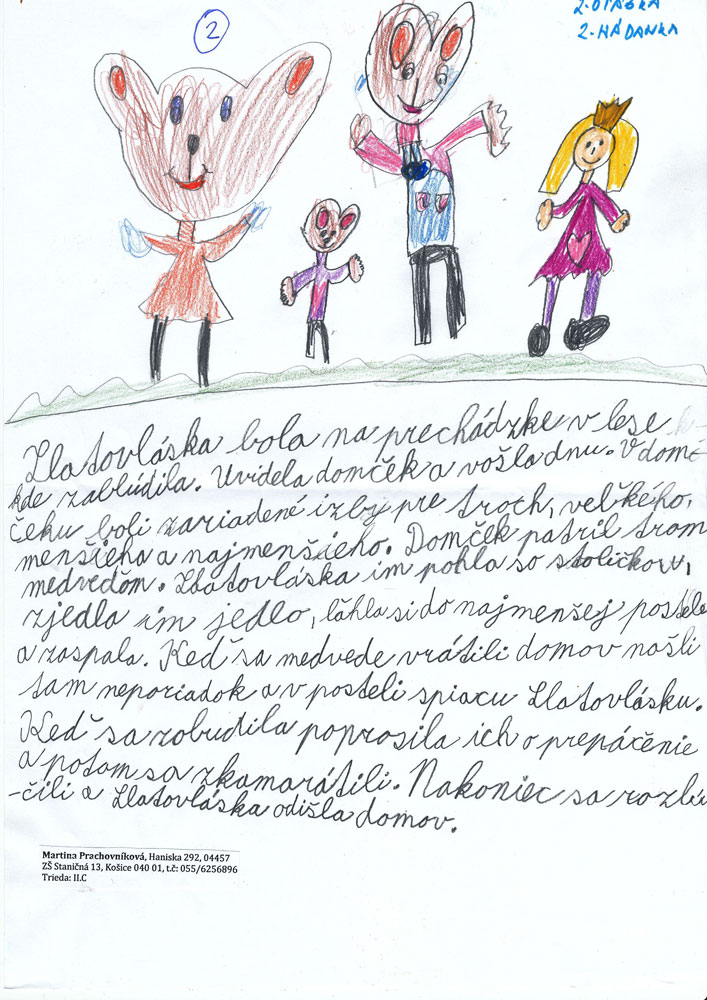 2
2-OTÁZKA
2-HÁDANKA
Zlatovláska bola na prechádzke v lese k-
kde zablúdila. Uvidela domček a vošla dnu. V dom-
čeku boli zariadené izby pre troch, veľkého,
menšieho a najmenšieho. Domček patril trom
medveďom. Zlatovláska im pohla so stoličkou,
zjedla im jedlo, ľahla si do najmenšej postele
a zaspala. Keď sa medvede vrátili domov našli
tam neporiadok a v posteli spiacu Zlatovlásku.
Keď sa zobudila poprosila ich o prepáčenie
a potom sa zkamarátili. Nakoniec sa rozlú
-čili a Zlatovláska odišla domov.
Martina Prachovníková, Haniska 292, 04457
ZŠ Staničná 13, Košice 040 01, t.č: 055/6256896
Trieda: II.C